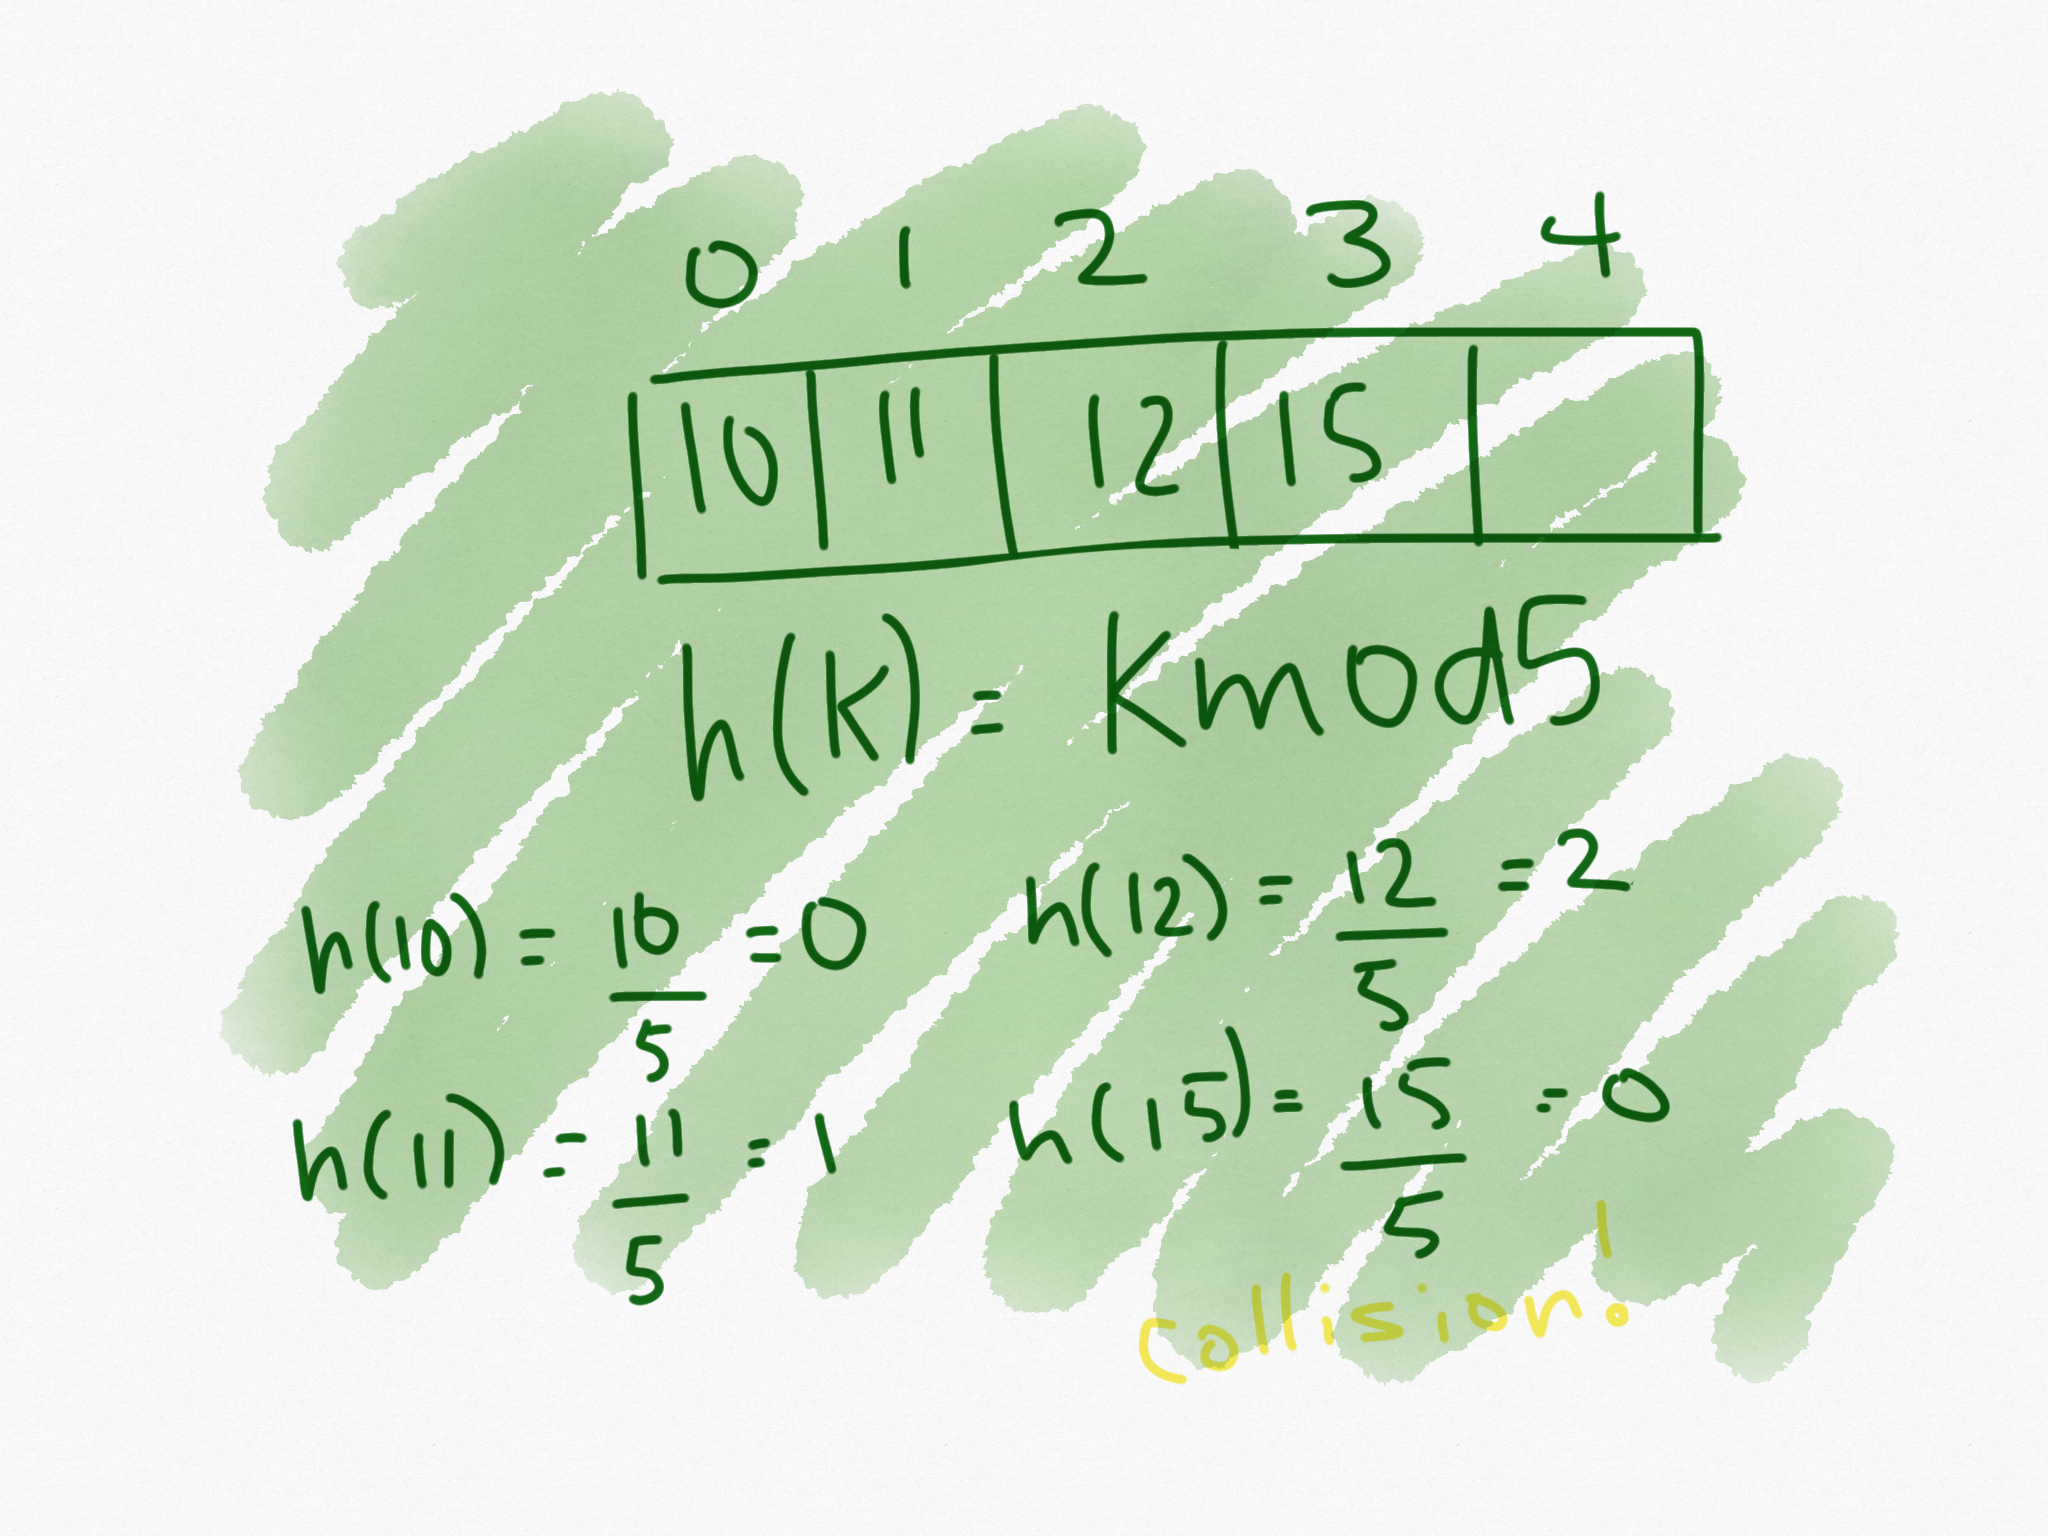 0 1 2 3 4
10 11 12 15
h(k) = k mod 5
h(10) = 10/5 = 0
h(12) = 12/5 = 2
h(11) = 11/5 = 1
h(15) = 15/5 = 0
collision!